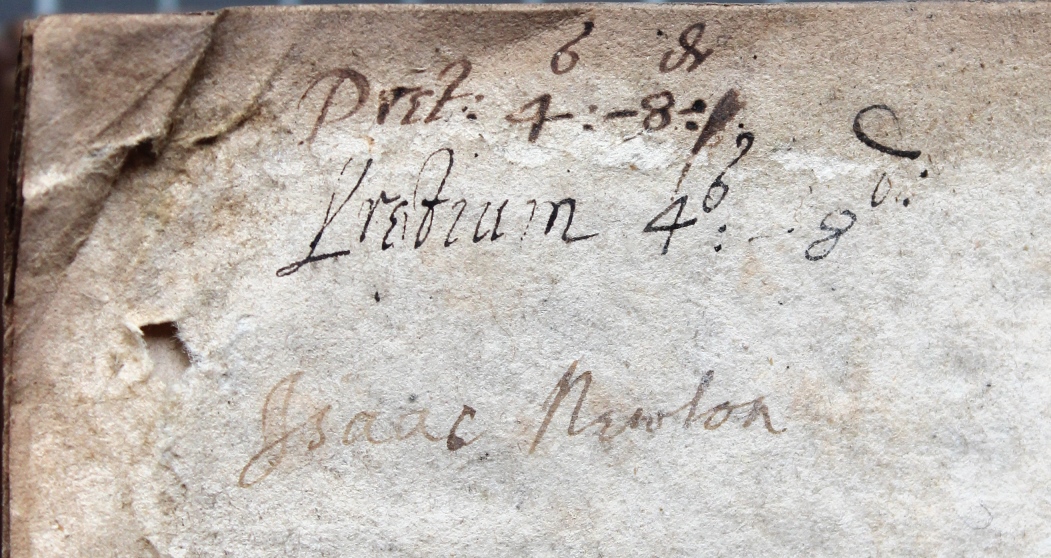 Pret: 4:-8:
Pretium 4:-8
Isaac Newton